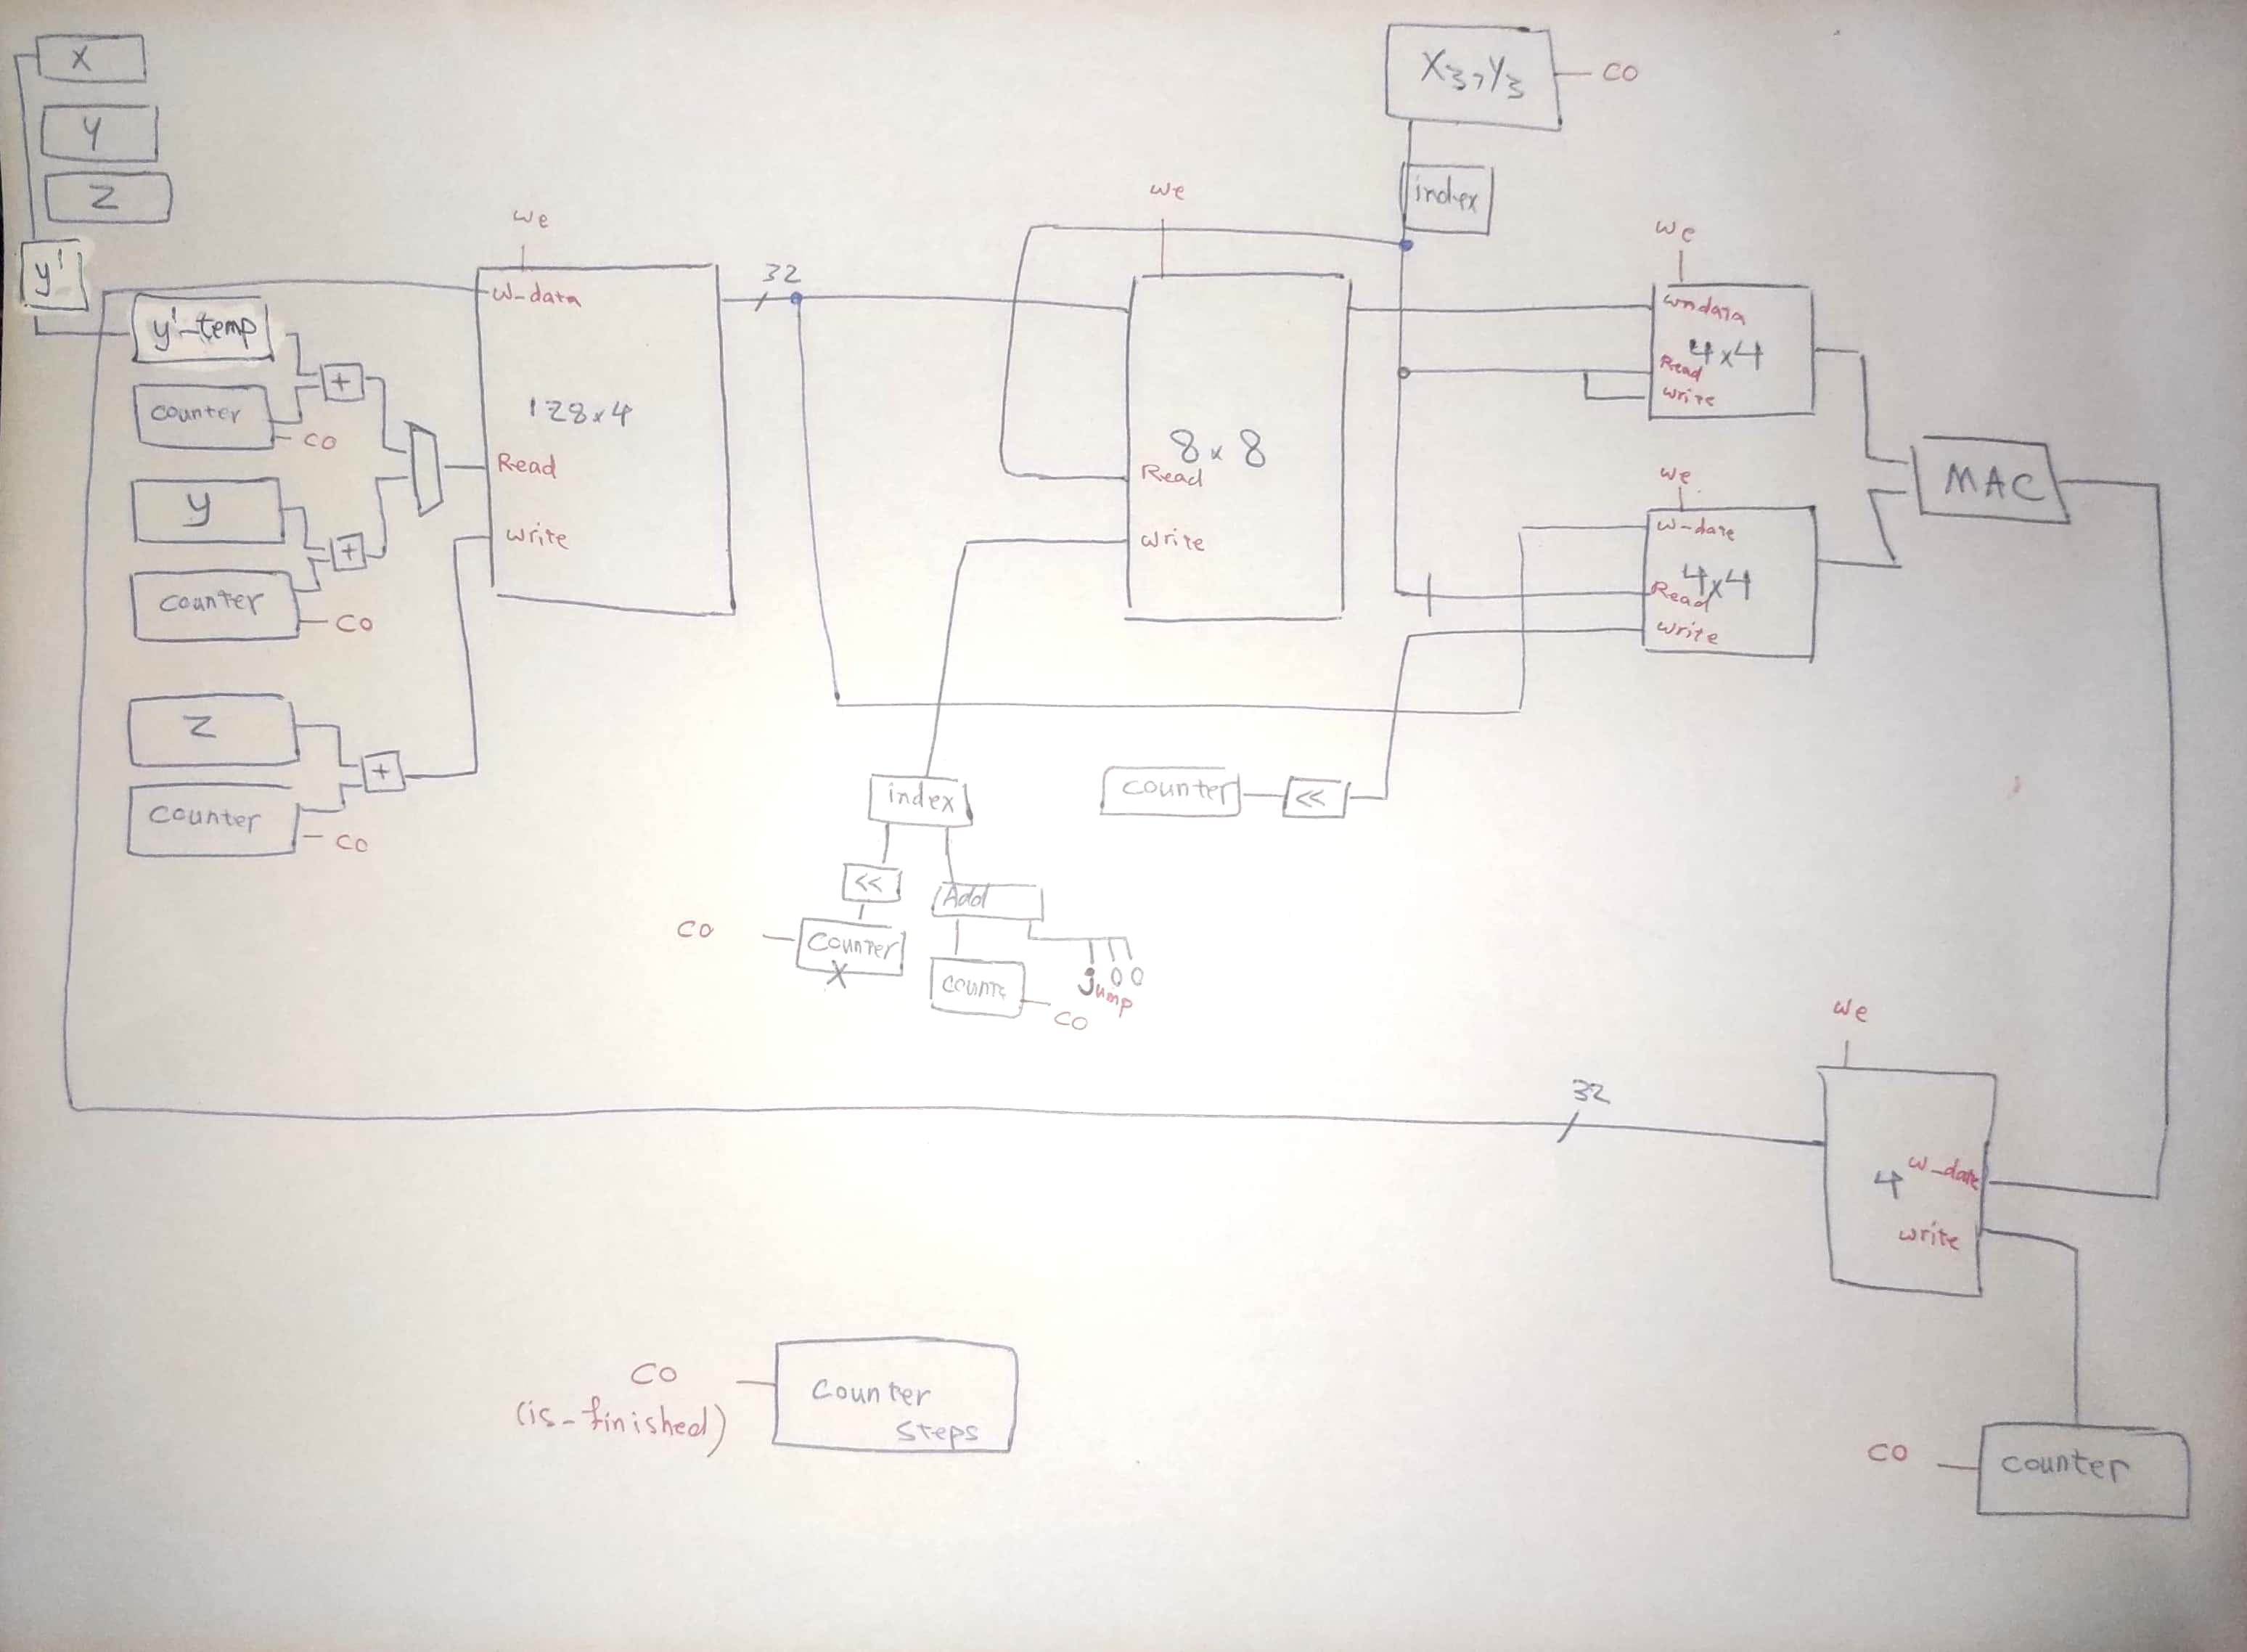 X
Y
Z
y'
y'-temp
counter
co
+
y
counter
co
+
Z
counter
co
+
we
w-data
128x4
Read
write
32
we
8x8
Read
write
X3,Y3
co
index
we
wndata
4x4
Read
write
we
w-date
4x4
Read
write
MAC
index
<<
Add
co
counter
X
counte
co
Jump
0 0
counter
<<
32
we
4
w_date
write
co
counter
co
(is-finished)
counter
steps